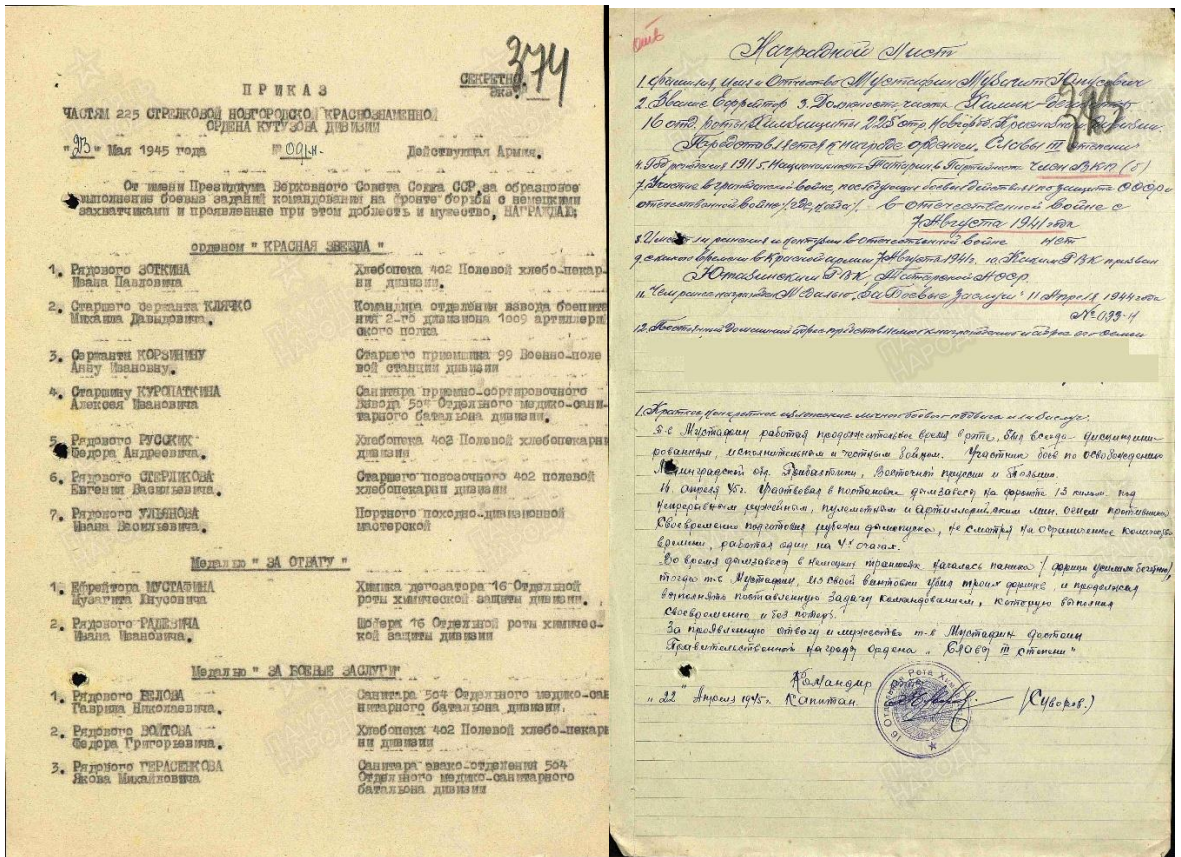 374
СЕКРЕТНО
экз.
ПРИКАЗ
ЧАСТЯМ 225 СТРЕЛКОВОЙ НОВГОРОДСКОЙ КРАСНОЗНАМЕННОЙ
ОРДЕНА КУТУЗОВА ДИВИЗИИ
"23" Мая 1945 года № 09/-н. Действующая Армия.
От имени Президиума Верховного Совета Союза ССР, за образцовое
выполнение боевых заданий командования на фронте борьбы с немецкими
захватчиками и проявленные при этом доблесть и мужество, НАГРАЖДАЮ:
орденом " КРАСНАЯ ЗВЕЗДА "
1. Рядового ЗОТКИНА Хлебопека 402 Полевой хлебо-пекар-
Ивана Павловича ни дивизии.
2. Старшего сержанта КЛЯЧКО Командира отделения взвода боепита
Михаила Давидовича. ния 2-го дивизиона 1009 артиллерий
ского полка
3. Сержанта КОРЗИНИНУ Старшего приемщика 99 Военно-поле
Анну Ивановну. вой станции дивизии
4. Старшину КУРОПАТКИНА Санитара приемно-сортировочного
Алексея Ивановича взвода 504 Отдельного медико-сани-
тарного батальона дивизии.
5. Рядового РУССКИХ Хлебопека 402 Полевой хлебопекарни
Федора Андреевича. дивизии
6. Рядового СТЕРЛИКОВА Старшего повозочного 402 полевой
Евгения Васильевича. хлебопекарни дивизии
7. Рядового УЛЬЯНОВА Портного походно-дивизионной
Ивана Васильевича. мастерской
Медалью " ЗА ОТВАГУ "
1. Ефрейтора МУСТАФИНА Химика дегозатора 16 Отдельной
Музагита Юнусовича роты химической защиты дивизии.
2. Рядового РАДЕВИЧА Шофера 16 Отдельной роты химичес-
Ивана Ивановича. кой защиты дивизии
Медалью " ЗА БОЕВЫЕ ЗАСЛУГИ"
1. Рядового БЕЛОВА Санитара 504 Отдельного медико-сан
Гаврила Николаевича. нитарного батальона дивизии.
2. Рядового ВОЙТОВА Хлебопека 402 Полевой хлебо-пекарн
Федора Григорьевича. ни дивизии
3. Рядового ГЕРАСЕНКОВА Санитара эвако-отделения 504
Якова Михайловича Отдельного медико-санитарного
батальона дивизии
Наградной Лист
1. Фамилия, имя и Отчество Мустафин Музагит Юнусович
2. Звание Ефрейтор 3. Должность часть Химик-дегазатор
16 отд. роты Химзащиты 225 стр. Новгород. Краснознам. дивизии.
Представляется к награде орденом „Славы III степени"
4. Год рождения 1911 5. Национальность Татарин 6. Партийность член ВКП(б)
7. Участие в гражданской войне, последующих боевых действиях по защите СССР и
отечественной войне /где, когда/. в отечественной войне с
7 Августа 1941 года
8. Имеет ли ранения и контузии в отечественной войне нет
9. с какого времени в Красной армии 7 Августа 1941г. 10. Каким РВК призван
Ютазинским РВК Татарской АССР.
11. Чем ранее награжден Медалью „За Боевые Заслуги" 11 Апреля 1944 года
№ 033-н
12. Постоянный домашний адрес представляемого к награждению и адрес его семьи
1. Краткое, конкретное изложение личного боевого подвига или заслуг.
т-щ Мустафин работая продолжительное время в роте, был всегда дисциплини-
рованным, исполнительным и честным бойцом. Участник боев по освобождению
Ленинградской обл. Прибалтики, Восточной пруссии и Польши.
14 апреля 45г. Участвовал в постановке дымзавесы на фронте 1,3 килом. под
непрерывным ружейным, пулеметным и артиллерийским мин. огнем противника
Своевременно подготовил рубежи дымопуска, не смотря на ограниченное количество
времени, работая один на 4х очагах.
Во время дымзавесы в немецких траншеях началась паника /фрицы усилили беготню/,
тогда т-щ Мустафин, из своей винтовки убил троих фрицев, и продолжал
выполнять поставленную задачу командованием, которую выполнил
своевременно и без потерь.
За проявленную отвагу и мужество т-щ Мустафин достоин
Правительственной награды ордена „Славы III степени"
Командир
„22" Апреля 1945г. Капитан (Суворов.)